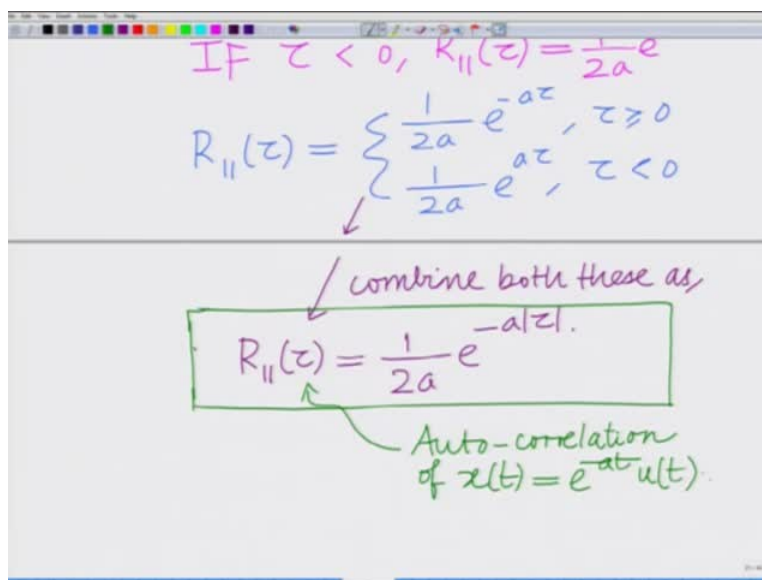 IF τ < 0, R₁₁(τ) = 1/2a e
R₁₁(τ) = { 1/2a e^-aτ, τ ≥ 0
1/2a e^aτ, τ < 0
combine both these as,
R₁₁(τ) = 1/2a e^-a|τ|.
Auto-correlation
of x(t) = e^-at u(t).